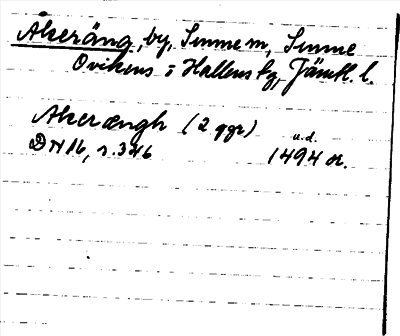 Åkeräng, by, Sunne sn, Sunne
Ovikens o Hallens tg, Jämtl. l.
Akerængh (2 ggr)
u.d.
DN 16, s. 346 1494 or.